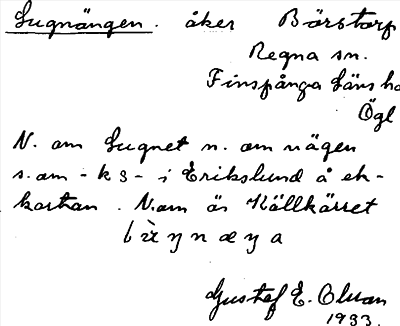 Lugnängen. åker Börstorp
Regna sn.
Finspånga läns hd
Ögl
N. om Lugnet n. om vägen
s. om - ks - i Erikslund å ek-
kartan. N. om är Källkärret
Gustaf E. Olsson
1933.